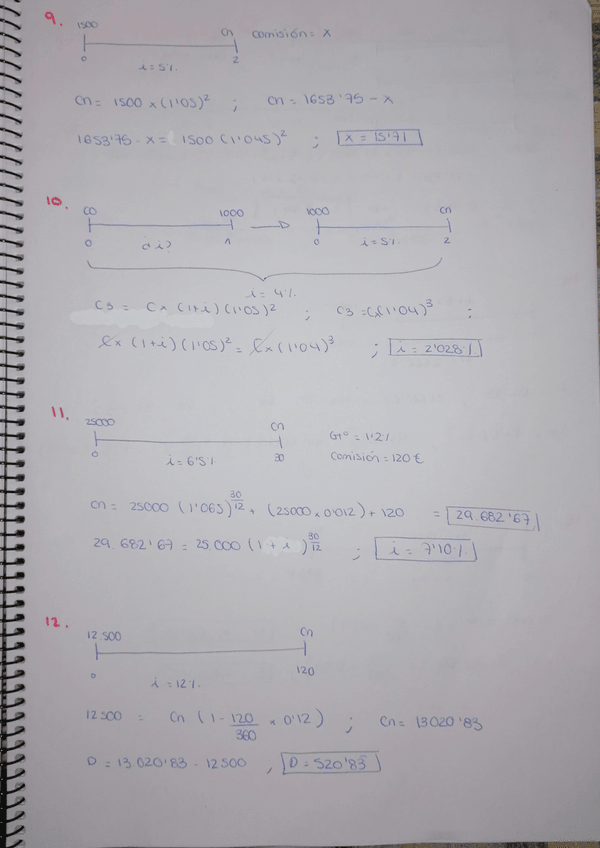 9.
1500 Cn comisión = x
0 i = 5% 2
Cn = 1500 x (1'05)² ; Cn = 1653'75 - x
1653'75 - x = 1500 (1'045)² ; x = 15'71
10.
C0 1000 1000 Cn
0 ¿i? 1 0 i = 5% 2
i = 4%
C3 = C x (1+i) (1'05)² ; C3 = C x (1'04)³ ;
C x (1+i) (1'05)² = C x (1'04)³ ; i = 2'028%
11.
25000 Cn Gtº = 1'2%
0 i = 6'5% 30 Comisión = 120 €
Cn = 25000 (1'065)^30/12 + (25000 x 0'012) + 120 = 29.682'67
29.682'67 = 25.000 (1 + i)^30/12 ; i = 7'10%
12.
12.500 Cn
0 i = 12% 120
12500 = Cn (1 - 120/360 x 0'12) ; Cn = 13020'83
D = 13.020'83 - 12500 ; D = 520'83